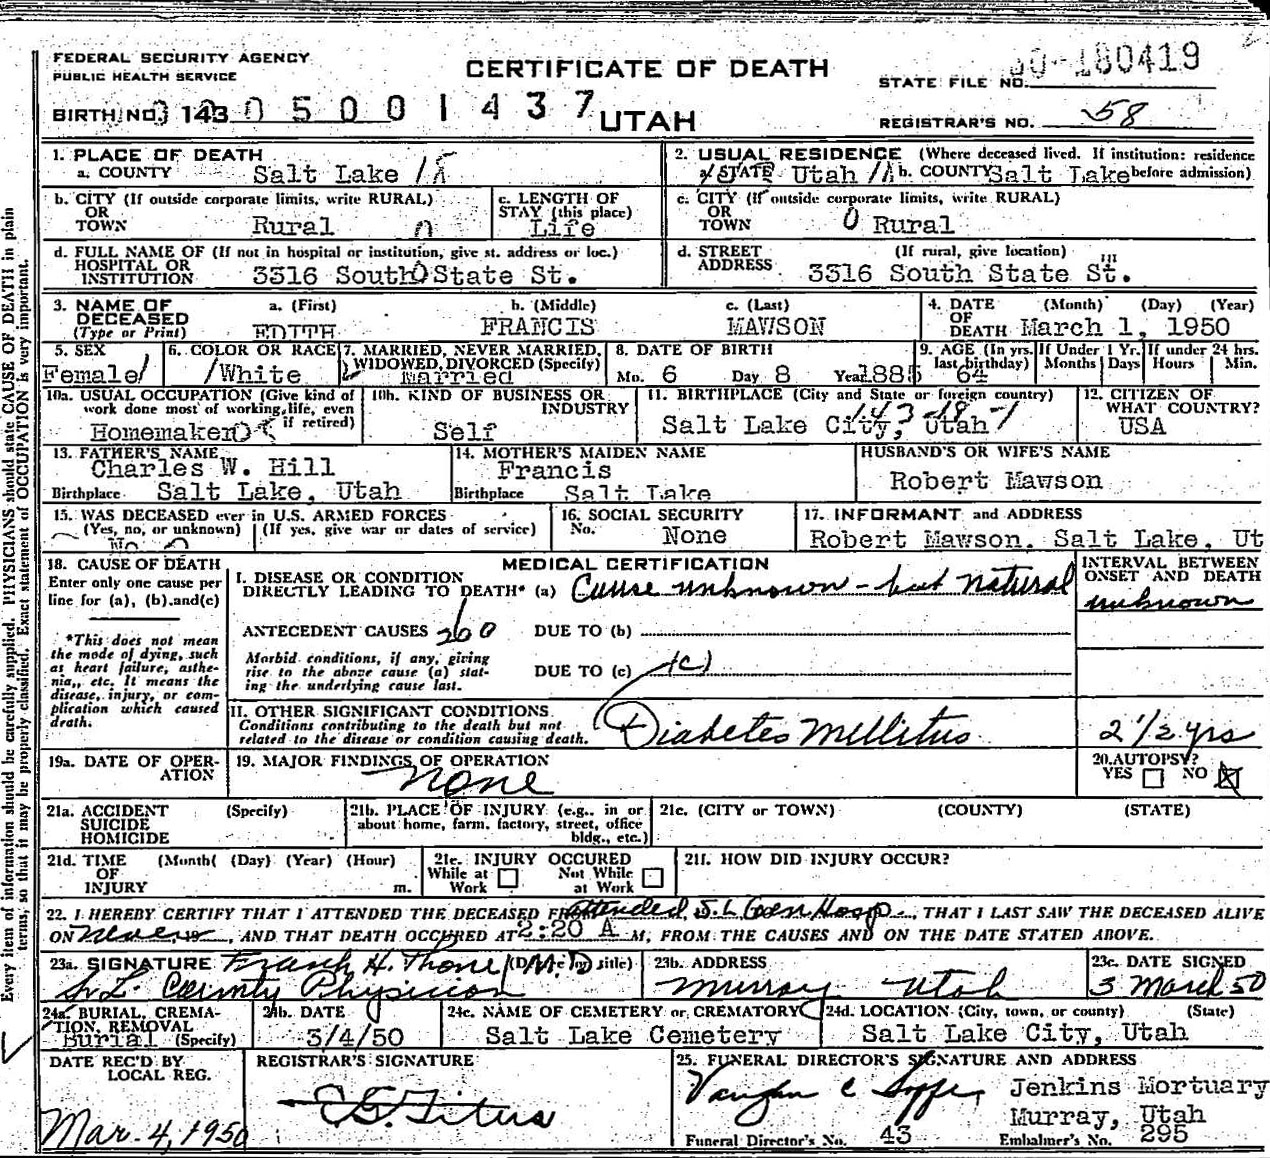 FEDERAL SECURITY AGENCY
PUBLIC HEALTH SERVICE
CERTIFICATE OF DEATH
STATE FILE NO. 50-180419
BIRTH NO. 143 0500 1437
UTAH
REGISTRAR'S NO. 58
1. PLACE OF DEATH
a. COUNTY Salt Lake 18
2. USUAL RESIDENCE (Where deceased lived. If institution: residence before admission)
a. STATE Utah b. COUNTY Salt Lake
b. CITY (If outside corporate limits, write RURAL)
OR
TOWN Rural 0
c. LENGTH OF
STAY (this place)
Life
c. CITY (If outside corporate limits, write RURAL)
OR
TOWN 0 Rural
d. FULL NAME OF (If not in hospital or institution, give st. address or loc.)
HOSPITAL OR
INSTITUTION 3316 South State St.
d. STREET (If rural, give location)
ADDRESS 3316 South State St.
3. NAME OF
DECEASED
(Type or Print)
a. (First) EDITH
b. (Middle) FRANCIS
c. (Last) MAWSON
4. DATE (Month) (Day) (Year)
OF
DEATH March 1, 1950
5. SEX
Female
6. COLOR OR RACE
White
7. MARRIED, NEVER MARRIED,
WIDOWED, DIVORCED (Specify)
Married
8. DATE OF BIRTH
Mo. 6 Day 8 Year 1885
9. AGE (In yrs. last birthday)
64
If Under 1 Yr.
Months Days
If under 24 hrs.
Hours Min.
10a. USUAL OCCUPATION (Give kind of
work done most of working life, even
if retired)
Homemaker
10b. KIND OF BUSINESS OR
INDUSTRY
Self
11. BIRTHPLACE (City and State or foreign country)
143-18-1
Salt Lake City, Utah
12. CITIZEN OF
WHAT COUNTRY?
USA
13. FATHER'S NAME
Charles W. Hill
Birthplace Salt Lake, Utah
14. MOTHER'S MAIDEN NAME
Francis
Birthplace Salt Lake
HUSBAND'S OR WIFE'S NAME
Robert Mawson
15. WAS DECEASED ever in U.S. ARMED FORCES
(Yes, no, or unknown) (If yes, give war or dates of service)
No
16. SOCIAL SECURITY
No. None
17. INFORMANT and ADDRESS
Robert Mawson, Salt Lake, Ut
18. CAUSE OF DEATH
Enter only one cause per
line for (a), (b), and (c)
*This does not mean
the mode of dying, such
as heart failure, asthe-
nia, etc. It means the
disease, injury, or com-
plication which caused
death.
MEDICAL CERTIFICATION
I. DISEASE OR CONDITION
DIRECTLY LEADING TO DEATH* (a) Cause unknown - but natural
ANTECEDENT CAUSES 260 DUE TO (b)
Morbid conditions, if any, giving
rise to the above cause (a) stat-
ing the underlying cause last.
DUE TO (c) (c)
II. OTHER SIGNIFICANT CONDITIONS
Conditions contributing to the death but not
related to the disease or condition causing death.
Diabetes Mellitus
INTERVAL BETWEEN
ONSET AND DEATH
unknown
2 1/2 yrs
19a. DATE OF OPER-
ATION
19. MAJOR FINDINGS OF OPERATION
none
20. AUTOPSY?
YES NO X
21a. ACCIDENT (Specify)
SUICIDE
HOMICIDE
21b. PLACE OF INJURY (e.g., in or
about home, farm, factory, street, office
bldg., etc.)
21c. (CITY or TOWN) (COUNTY) (STATE)
21d. TIME (Month( (Day) (Year) (Hour)
OF
INJURY m.
21e. INJURY OCCURED
While at Work Not While at Work
21f. HOW DID INJURY OCCUR?
22. I HEREBY CERTIFY THAT I ATTENDED THE DECEASED attended S.L Gen Hosp, THAT I LAST SAW THE DECEASED ALIVE
ON never, AND THAT DEATH OCCURED AT 2:20 A M, FROM THE CAUSES AND ON THE DATE STATED ABOVE.
23a. SIGNATURE Frank H. Thone M.D
S.L. County Physician
23b. ADDRESS
Murray Utah
23c. DATE SIGNED
3 March 50
24a. BURIAL, CREMA-
TION, REMOVAL
Burial (Specify)
24b. DATE
3/4/50
24c. NAME OF CEMETERY OR CREMATORY
Salt Lake Cemetery
24d. LOCATION (City, town, or county) (State)
Salt Lake City, Utah
DATE REC'D BY
LOCAL REG.
Mar. 4, 1950
REGISTRAR'S SIGNATURE
25. FUNERAL DIRECTOR'S SIGNATURE AND ADDRESS
Jenkins Mortuary
Murray, Utah
Funeral Director's No. 43 Embalmer's No. 295
Every item of information should be carefully supplied. PHYSICIANS should state CAUSE OF DEATH in plain
terms, so that it may be properly classified. Exact statement of OCCUPATION is very important.